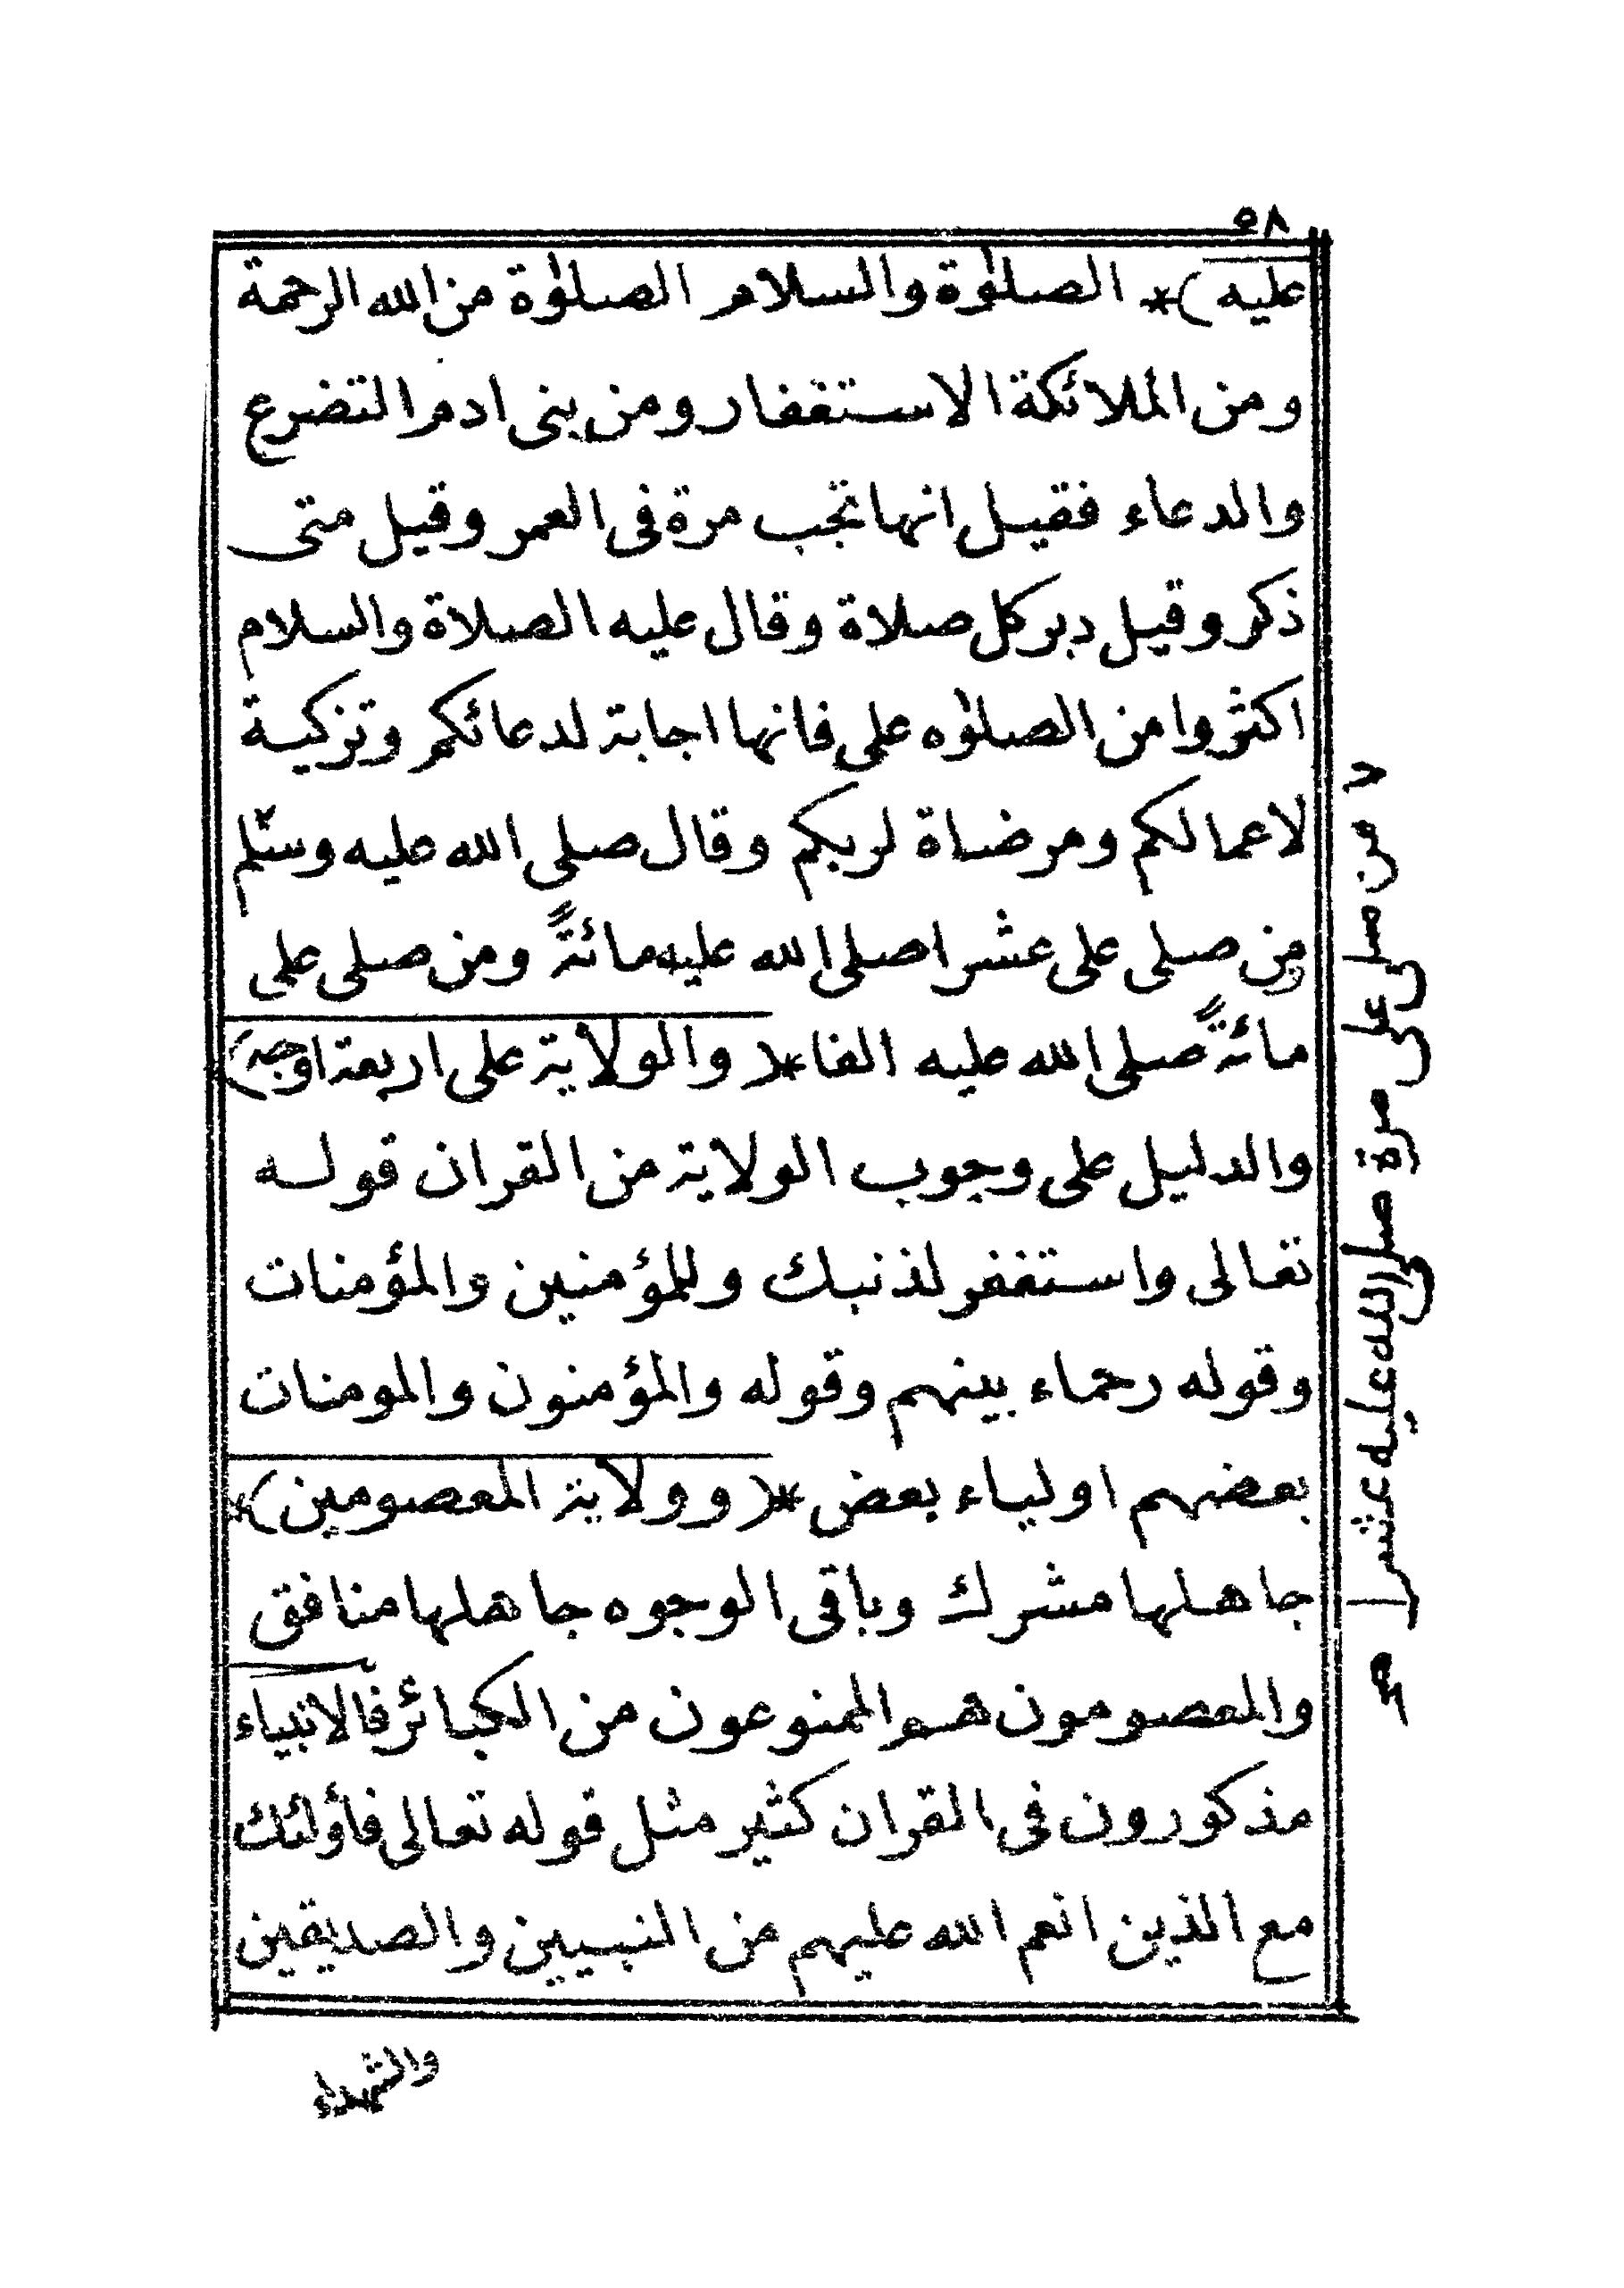 ٥٨
عليه )* الصلوٰة والسلام الصلوٰة من الله الرحمة
ومن الملائكة الاستغفار ومن بنى ادم التضرع
والدعاء فقيل انها تجب مرة فى العمر وقيل متى
ذكر وقيل دبر كل صلاة وقال عليه الصلاة والسلام
اكثروا من الصلوٰه على فانها اجابة لدعائكم وتزكية
لاعمالكم ومرضاة لربكم وقال صلى الله عليه وسلّم
من صلى على عشرا صلى الله عليه مائةً ومن صلى على
مائةً صلى الله عليه الفا *( والولاية على اربعة اوجه )
والدليل على وجوب الولاية من القران قوله
تعالى واستغفر لذنبك وللمؤمنين والمؤمنات
وقوله رحماء بينهم وقوله والمؤمنون والمومنات
بعضهم اولياء بعض *( وولاية المعصومين )*
جاهلها مشرك وباقى الوجوه جاهلها منافق
والمعصومون هم الممنوعون من الكبائر فالانبياء
مذكورون فى القران كثير مثل قوله تعالى فأولئك
مع الذين انعم الله عليهم من النبيين والصديقين
والشهداء
من صلى على مرة صلى الله عليه عشرا صح